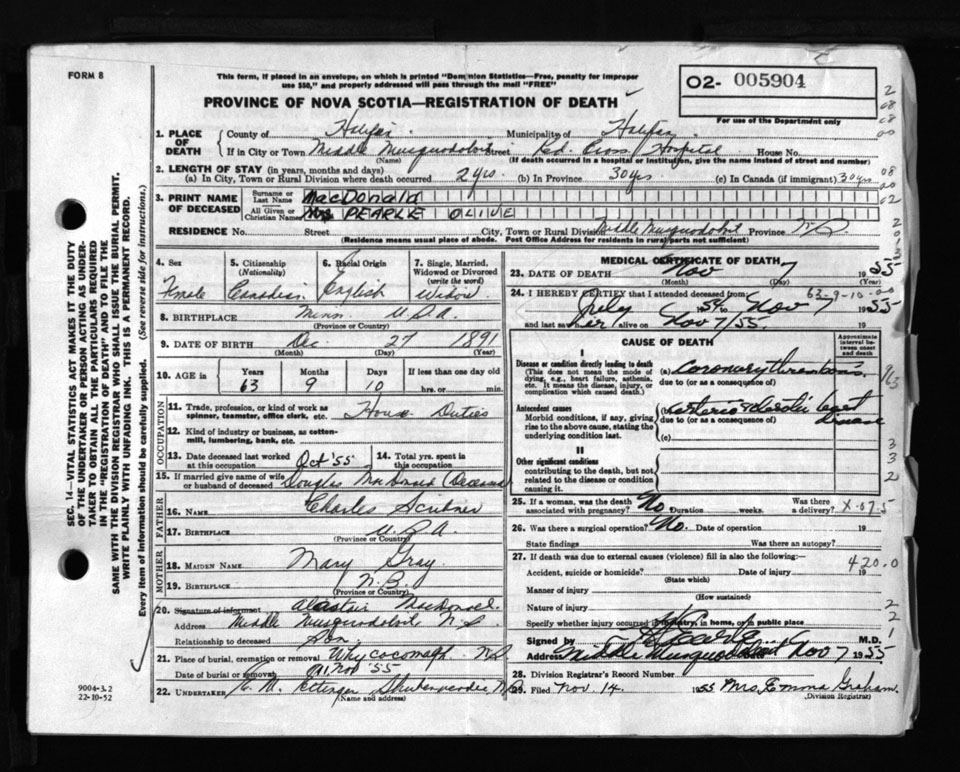 FORM 8
This form, if placed in an envelope, on which is printed "Dominion Statistics—Free, penalty for improper
use $50," and properly addressed will pass through the mail "FREE"
O2- 005904
For use of the Department only
PROVINCE OF NOVA SCOTIA—REGISTRATION OF DEATH
1. PLACE OF DEATH
County of Halifax Municipality of Halifax
If in City or Town Middle Musquodoboit Street Red Cross Hospital House No.
(Name) (If death occurred in a hospital or institution, give the name instead of street and number)
2. LENGTH OF STAY (in years, months and days)
(a) In City, Town or Rural Division where death occurred 2 yrs. (b) In Province 30 yrs (c) In Canada (if immigrant) 30 yrs
3. PRINT NAME OF DECEASED
Surname or Last Name MacDonald
All Given or Christian Names Mrs PEARLE OLIVE
RESIDENCE No. Street City, Town or Rural Division Middle Musquodoboit Province N.S.
(Residence means usual place of abode. Post Office Address for residents in rural parts not sufficient)
4. Sex Female
5. Citizenship (Nationality) Canadian
6. Racial Origin English
7. Single, Married, Widowed or Divorced (write the word) Widow
8. BIRTHPLACE Minn. U.S.A.
(Province or Country)
9. DATE OF BIRTH Dec. 27 1891
(Month) (Day) (Year)
10. AGE in Years Months Days If less than one day old
63 9 10 hrs. or min.
OCCUPATION
11. Trade, profession, or kind of work as spinner, teamster, office clerk, etc. House Duties
12. Kind of industry or business, as cotton-mill, lumbering, bank, etc.
13. Date deceased last worked at this occupation Oct '55
14. Total yrs. spent in this occupation
15. If married give name of wife or husband of deceased Douglas MacDonald (Deceased)
FATHER
16. NAME Charles Scribner
17. BIRTHPLACE U.S.A.
(Province or Country)
MOTHER
18. MAIDEN NAME Mary Gray
19. BIRTHPLACE N.B.
(Province or Country)
20. Signature of informant Alastair MacDonald
Address Middle Musquodoboit N.S.
Relationship to deceased Son.
21. Place of burial, cremation or removal Whycocomagh N.S.
Date of burial or removal Nov '55
22. UNDERTAKER Ettinger Shubenacadie, N.S.
(Name and address)
MEDICAL CERTIFICATE OF DEATH
23. DATE OF DEATH Nov 7 1955
(Month) (Day)
63-9-10-00
24. I HEREBY CERTIFY that I attended deceased from
July 1954 to Nov 7 1955
and last saw her alive on Nov 7/55.
CAUSE OF DEATH
Approximate interval between onset and death
I
Disease or condition directly leading to death
(This does not mean the mode of dying, e.g., heart failure, asthenia, etc. It means the disease, injury, or complication which caused death.)
(a) Coronary thrombosis
due to (or as a consequence of)
Antecedent causes
Morbid conditions, if any, giving rise to the above cause, stating the underlying condition last.
(b) arteriosclerotic heart disease
due to (or as a consequence of)
(c)
II
Other significant conditions
contributing to the death, but not related to the disease or condition causing it.
25. If a woman, was the death associated with pregnancy? No Duration weeks Was there a delivery? X-07-5
26. Was there a surgical operation? No. Date of operation 19
State findings Was there an autopsy?
27. If death was due to external causes (violence) fill in also the following:—
420.0
Accident, suicide or homicide? Date of injury 19
(State which)
Manner of injury
(How sustained)
Nature of injury
Specify whether injury occurred in industry, in home, or in public place
Signed by M.D.
Address Middle Musquodoboit Nov 7 1955
28. Division Registrar's Record Number
29. Filed Nov 14. 1955 Mrs. Emma Graham.
(Division Registrar)
9004-3.2
22-10-52
SEC. 14—VITAL STATISTICS ACT MAKES IT THE DUTY
OF THE UNDERTAKER OR PERSON ACTING AS UNDER-
TAKER TO OBTAIN ALL THE PARTICULARS REQUIRED
IN THE "REGISTRATION OF DEATH" AND TO FILE THE
SAME WITH THE DIVISION REGISTRAR WHO SHALL ISSUE THE BURIAL PERMIT.
WRITE PLAINLY WITH UNFADING INK. THIS IS A PERMANENT RECORD.
Every item of information should be carefully supplied. (See reverse side for instructions.)